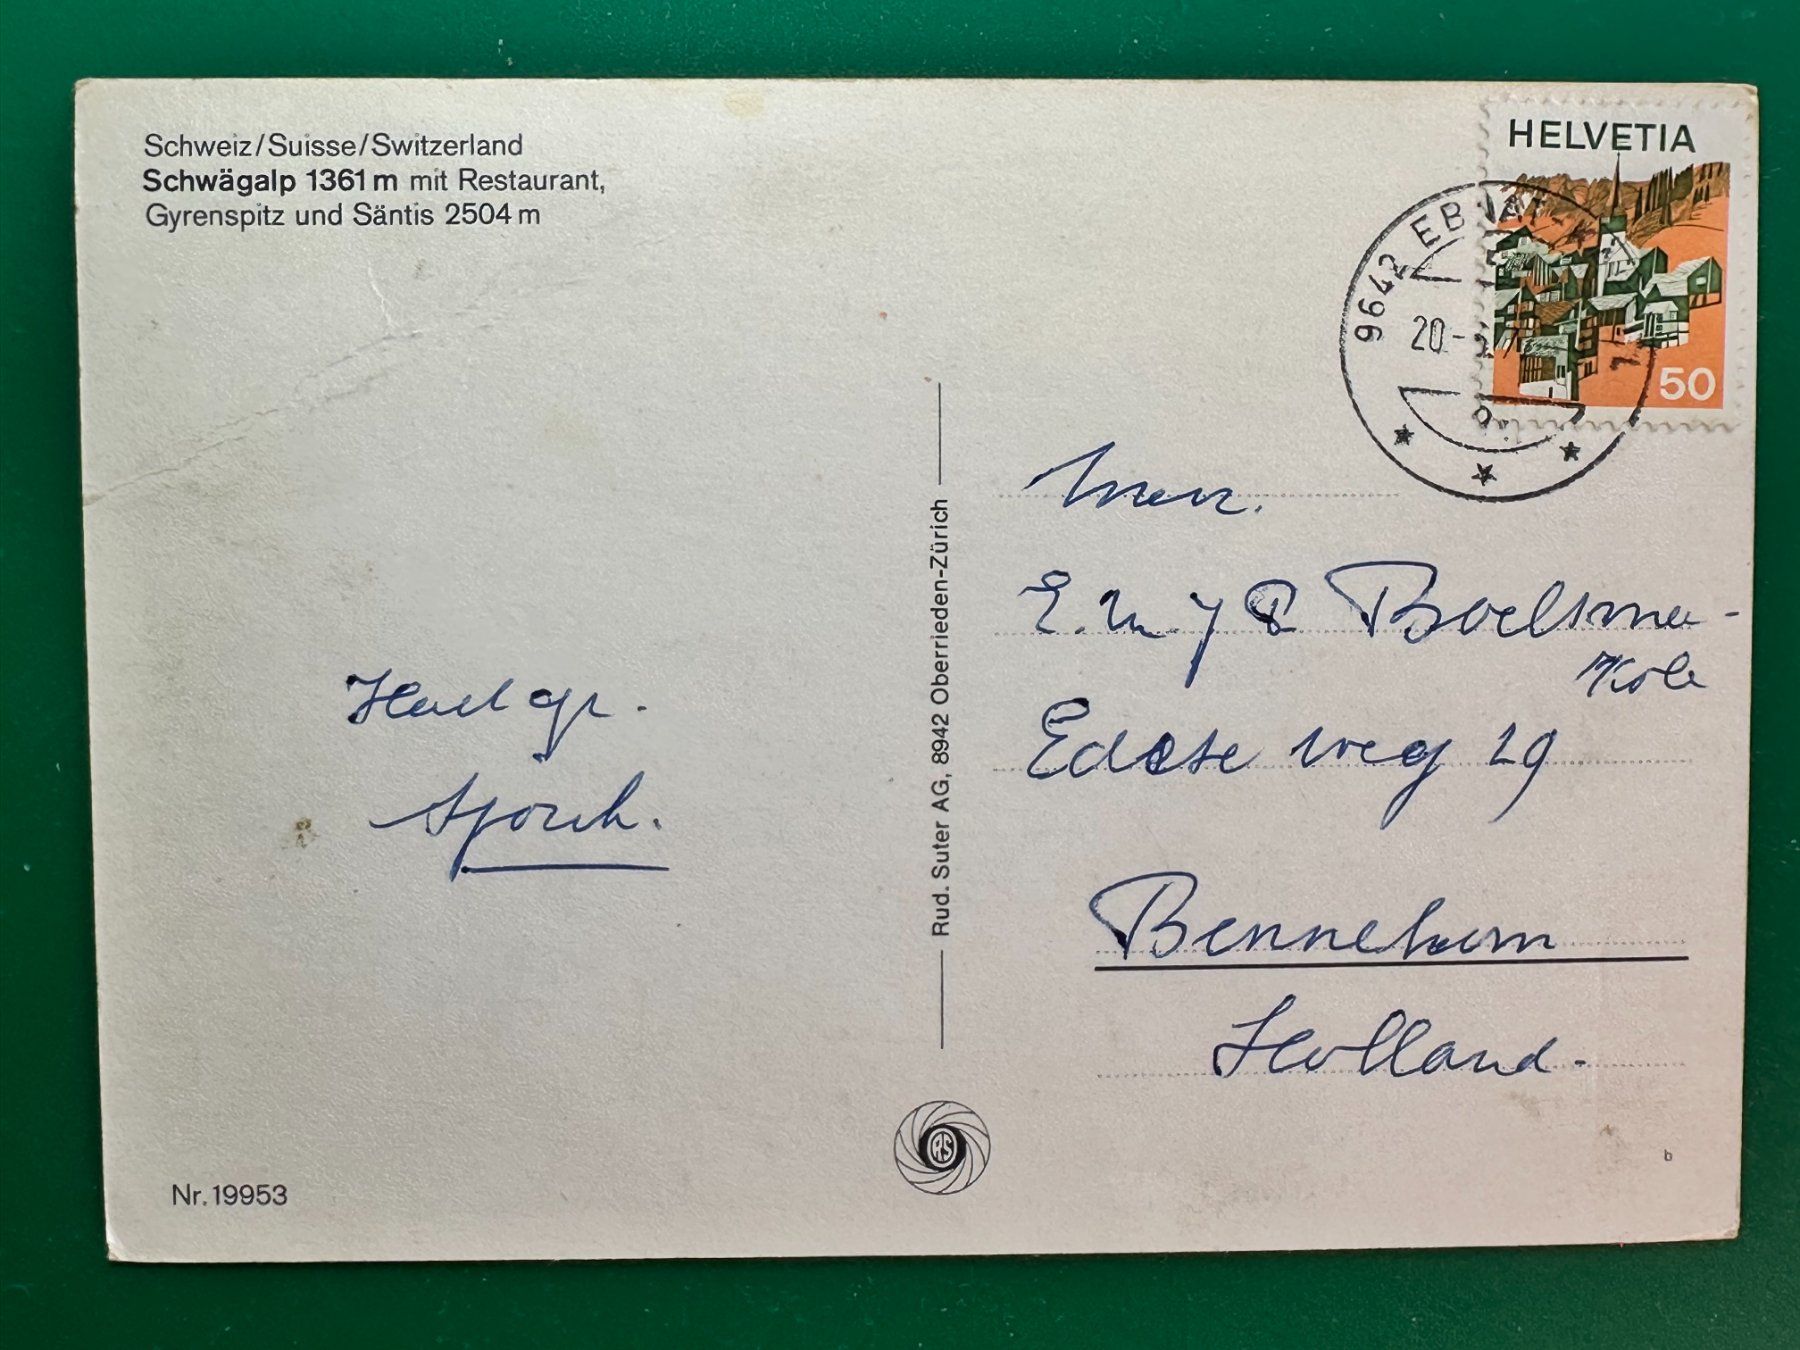 Schweiz/Suisse/Switzerland
Schwägalp 1361 m mit Restaurant,
Gyrenspitz und Säntis 2504 m
HELVETIA
50
9642 EBNAT-
20.-
Hart gr.
Rud. Suter AG, 8942 Oberrieden-Zürich
E.
Kole
Edese weg 29
Bennekom
Holland.
RS
Nr. 19953
b